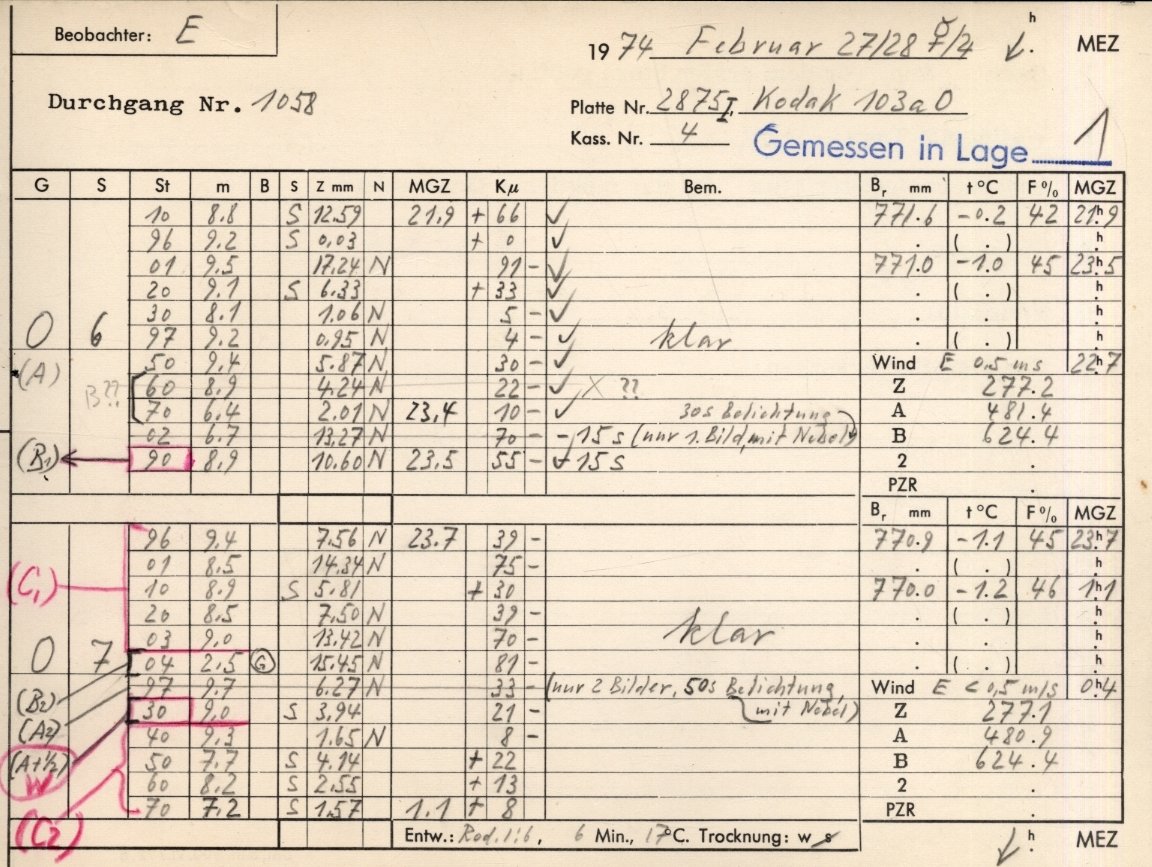 Beobachter: E
1974 Februar 27/28 h MEZ
Durchgang Nr. 1058
Platte Nr. 2875I, Kodak 103aO
Kass. Nr. 4
Gemessen in Lage 1
G S St m B S Z mm N MGZ Kμ Bem. Br mm t°C F% MGZ
10 8.8 S 12.59 21,9 + 66 ✓ 771.6 -0.2 42 21h9
96 9.2 S 0,03 + 0 ✓ . ( . ) h
01 9.5 17.24 N 91 - ✓ 771.0 -1.0 45 23h5
20 9.1 S 6.33 + 33 ✓ . ( . ) h
30 8.1 1.06 N 5 - ✓ . . h
0 6 97 9.2 0.95 N 4 - ✓ klar . ( . ) h
(A) 50 9.4 5.87 N 30 - ✓ Wind E 0.5 m/s 22h7
B?? 60 8.9 4.24 N 22 - ✓ X ?? Z 277.2
70 6.4 2.01 N 23,4 10 - ✓ 30s Belichtung A 481.4
02 6.7 13,27 N 70 - - 15s (nur 1. Bild, mit Nebel) B 624.4
(B1) 90 8.9 10.60 N 23,5 55 - ✓ 15s 2 .
PZR .
Br mm t°C F% MGZ
96 9.4 7.56 N 23.7 39 - 770.9 -1.1 45 23h7
01 8.5 14.34 N 75 - . ( . ) h
(C1) 10 8.9 S 5.81 + 30 770.0 -1.2 46 1h1
20 8.5 7.50 N 39 - . ( . ) h
03 9.0 13.42 N 70 - klar . . h
0 7 04 2.5 G 15.45 N 81 - . ( . ) h
(B2) 97 9.7 6.27 N 33 - (nur 2 Bilder, 50s Belichtung, Wind E < 0,5 m/s 0h4
(A2) 30 9.0 S 3.94 21 - mit Nebel) Z 277.1
40 9.3 1.65 N 8 - A 480.9
(A+1/2) 50 7.7 S 4.14 + 22 B 624.4
W 60 8.2 S 2.55 + 13 2 .
70 7.2 S 1.57 1.1 + 8 PZR .
(C2) Entw.: Rod. 1:6, 6 Min., 17°C. Trocknung: w s h MEZ